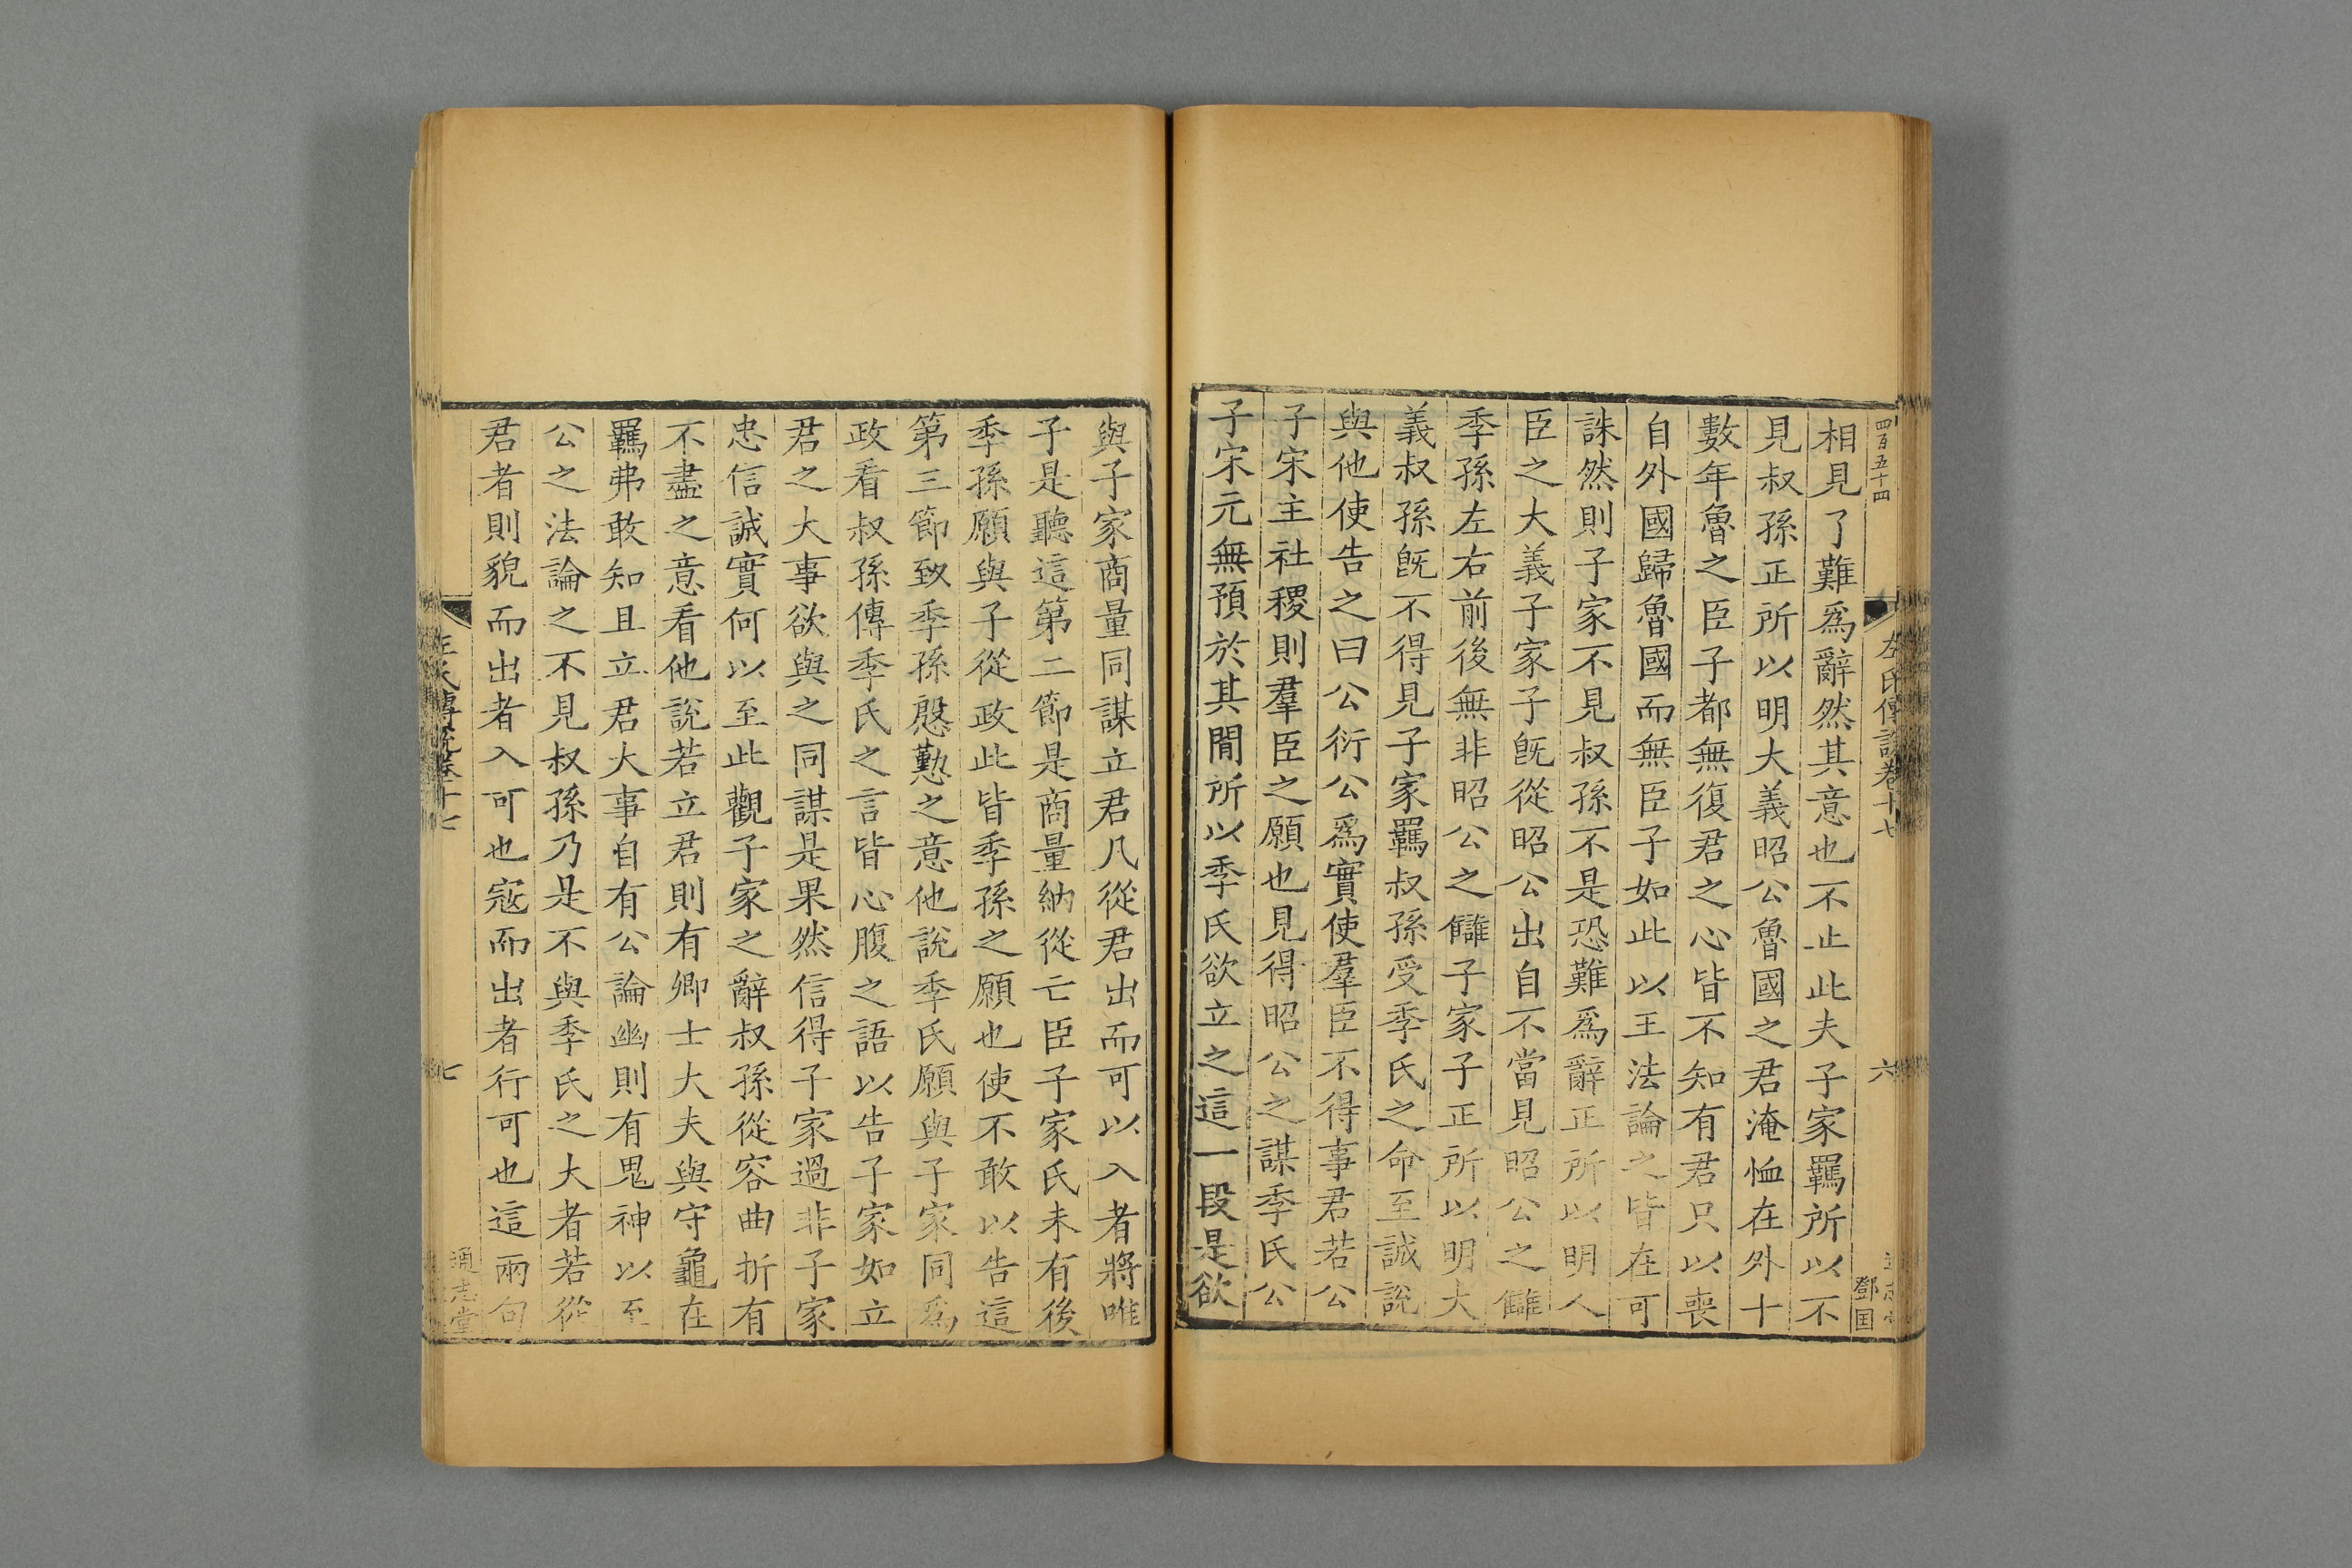 四百五十四
左氏傳說卷十七
六
鄧国
相見了難爲辭然其意也不止此夫子家羈所以不
見叔孫正所以明大義昭公魯國之君淹恤在外十
數年魯之臣子都無復君之心皆不知有君只以喪
自外國歸魯國而無臣子如此以王法論之皆在可
誅然則子家不見叔孫不是恐難爲辭正所以明人
臣之大義子家子旣從昭公出自不當見昭公之讎
季孫左右前後無非昭公之讎子家子正所以明大
義叔孫旣不得見子家羈叔孫受季氏之命至誠說
與他使告之曰公衍公爲實使羣臣不得事君若公
子宋主社稷則羣臣之願也見得昭公之謀季氏公
子宋元無預於其閒所以季氏欲立之這一段是欲
與子家商量同謀立君凡從君出而可以入者將唯
子是聽這第二節是商量納從亡臣子家氏未有後
季孫願與子從政此皆季孫之願也使不敢以告這
第三節致季孫慇懃之意他說季氏願與子家同爲
政看叔孫傳季氏之言皆心腹之語以告子家如立
君之大事欲與之同謀是果然信得子家過非子家
忠信誠實何以至此觀子家之辭叔孫從容曲折有
不盡之意看他說若立君則有卿士大夫與守龜在
羈弗敢知且立君大事自有公論幽則有鬼神以至
公之法論之不見叔孫乃是不與季氏之大者若從
君者則貌而出者入可也寇而出者行可也這兩句
左氏傳說卷十七
七
通志堂